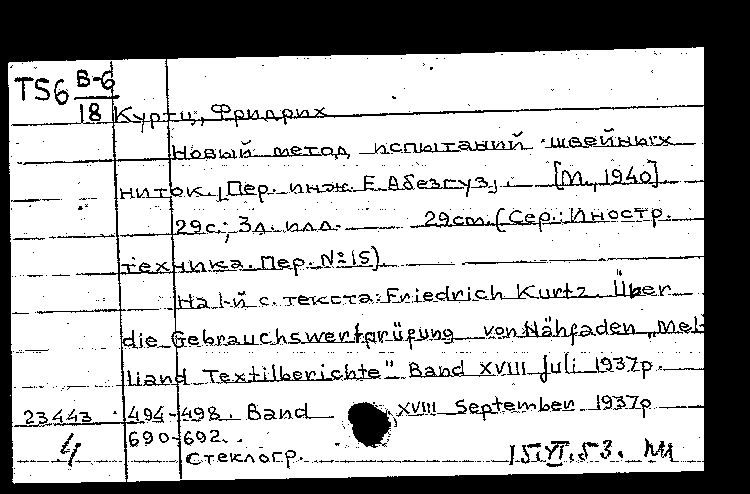 TS6 В-6
18 Куртц, Фридрих
Новый метод испытаний швейных
ниток. [Пер. инж. Е. Абезгуз]. [М., 1940]
29с.; 3л. илл. 29см. (Сер.: Иностр.
техника. Пер. №15)
На 1-й с. текста: Friedrich Kurtz. Über
die Gebrauchswertprüfung von Nähfaden „Mel-
liand Textilberichte" Band XVIII Juli 1937р.
23443 494-498. Band XVIII September 1937р
4 690-692.
Стеклогр. 15.VI.53.